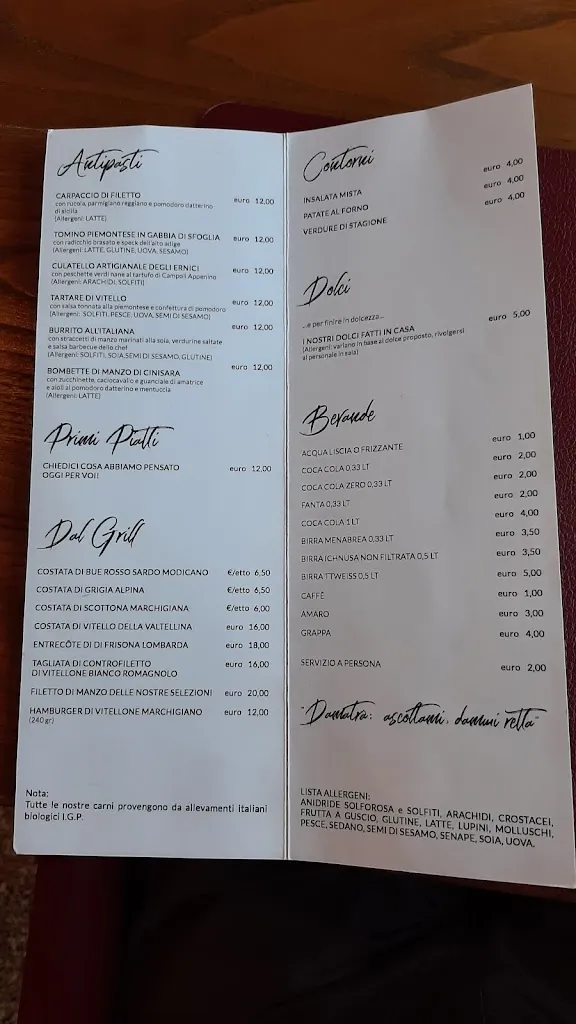 Antipasti
CARPACCIO DI FILETTO euro 12,00
con rucola, parmigiano reggiano e pomodoro datterino
di sicilia
(Allergeni: LATTE)
TOMINO PIEMONTESE IN GABBIA DI SFOGLIA euro 12,00
con radicchio brasato e speck dell'alto adige
(Allergeni: LATTE, GLUTINE, UOVA, SESAMO)
CULATELLO ARTIGIANALE DEGLI ERNICI euro 12,00
con peschette verdi nane al tartufo di Campoli Appenino
(Allergeni: ARACHIDI, SOLFITI)
TARTARE DI VITELLO euro 12,00
con salsa tonnata alla piemontese e confettura di pomodoro
(Allergeni: SOLFITI, PESCE, UOVA, SEMI DI SESAMO)
BURRITO ALL'ITALIANA euro 12,00
con straccetti di manzo marinati alla soia, verdurine saltate
e salsa barbecue dello chef
(Allergeni: SOLFITI, SOIA, SEMI DI SESAMO, GLUTINE)
BOMBETTE DI MANZO DI CINISARA euro 12,00
con zucchinette, caciocavallo e guanciale di amatrice
e aioli al pomodoro datterino e mentuccia
(Allergeni: LATTE)
Primi Piatti
CHIEDICI COSA ABBIAMO PENSATO euro 12,00
OGGI PER VOI!
Dal Grill
COSTATA DI BUE ROSSO SARDO MODICANO €/etto 6,50
COSTATA DI GRIGIA ALPINA €/etto 6,50
COSTATA DI SCOTTONA MARCHIGIANA €/etto 6,00
COSTATA DI VITELLO DELLA VALTELLINA euro 16,00
ENTRECÔTE DI DI FRISONA LOMBARDA euro 18,00
TAGLIATA DI CONTROFILETTO euro 16,00
DI VITELLONE BIANCO ROMAGNOLO
FILETTO DI MANZO DELLE NOSTRE SELEZIONI euro 20,00
HAMBURGER DI VITELLONE MARCHIGIANO euro 12,00
(240 gr)
Nota:
Tutte le nostre carni provengono da allevamenti italiani
biologici I.G.P.
Contorni
INSALATA MISTA euro 4,00
PATATE AL FORNO euro 4,00
VERDURE DI STAGIONE euro 4,00
Dolci
...e per finire in dolcezza...
I NOSTRI DOLCI FATTI IN CASA euro 5,00
(Allergeni: variano in base al dolce proposto, rivolgersi
al personale in sala)
Bevande
ACQUA LISCIA O FRIZZANTE euro 1,00
COCA COLA 0,33 LT euro 2,00
COCA COLA ZERO 0,33 LT euro 2,00
FANTA 0,33 LT euro 2,00
COCA COLA 1 LT euro 4,00
BIRRA MENABREA 0,33 LT euro 3,50
BIRRA ICHNUSA NON FILTRATA 0,5 LT euro 3,50
BIRRA TTWEISS 0,5 LT euro 5,00
CAFFÈ euro 1,00
AMARO euro 3,00
GRAPPA euro 4,00
SERVIZIO A PERSONA euro 2,00
"Damatrà: ascoltami, dammi retta"
LISTA ALLERGENI:
ANIDRIDE SOLFOROSA e SOLFITI, ARACHIDI, CROSTACEI,
FRUTTA A GUSCIO, GLUTINE, LATTE, LUPINI, MOLLUSCHI,
PESCE, SEDANO, SEMI DI SESAMO, SENAPE, SOIA, UOVA.